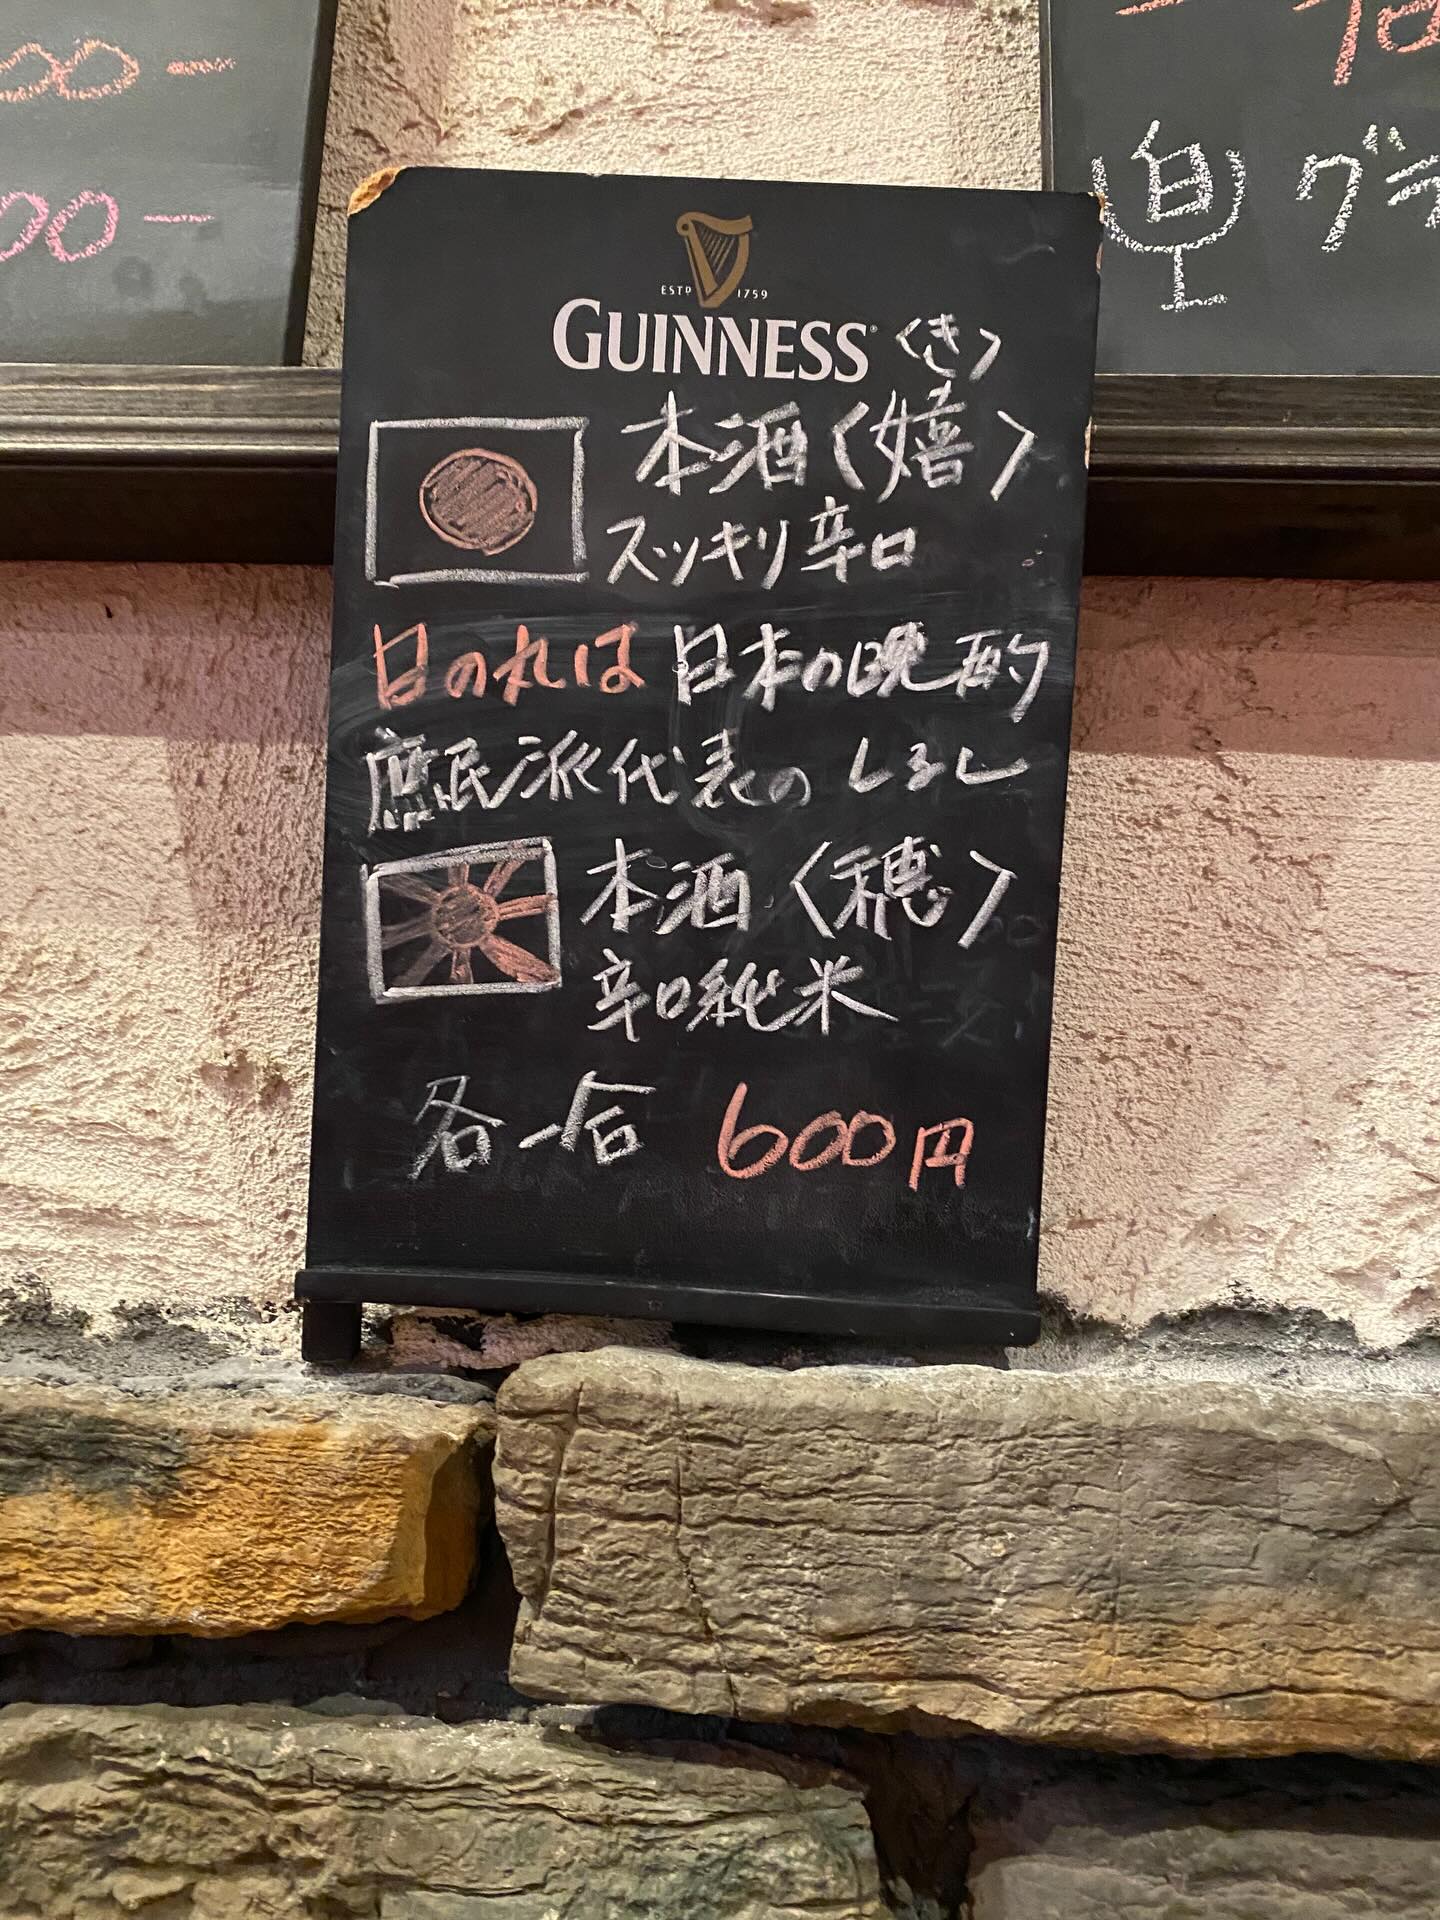 00-
00-
白 グラ
ESTD 1759
GUINNESS
〈き〉
本酒〈嬉〉
スッキリ辛口
日の丸は日本の晩酌
庶民派代表のしるし
本酒〈穂〉
辛口純米
各一合 600円